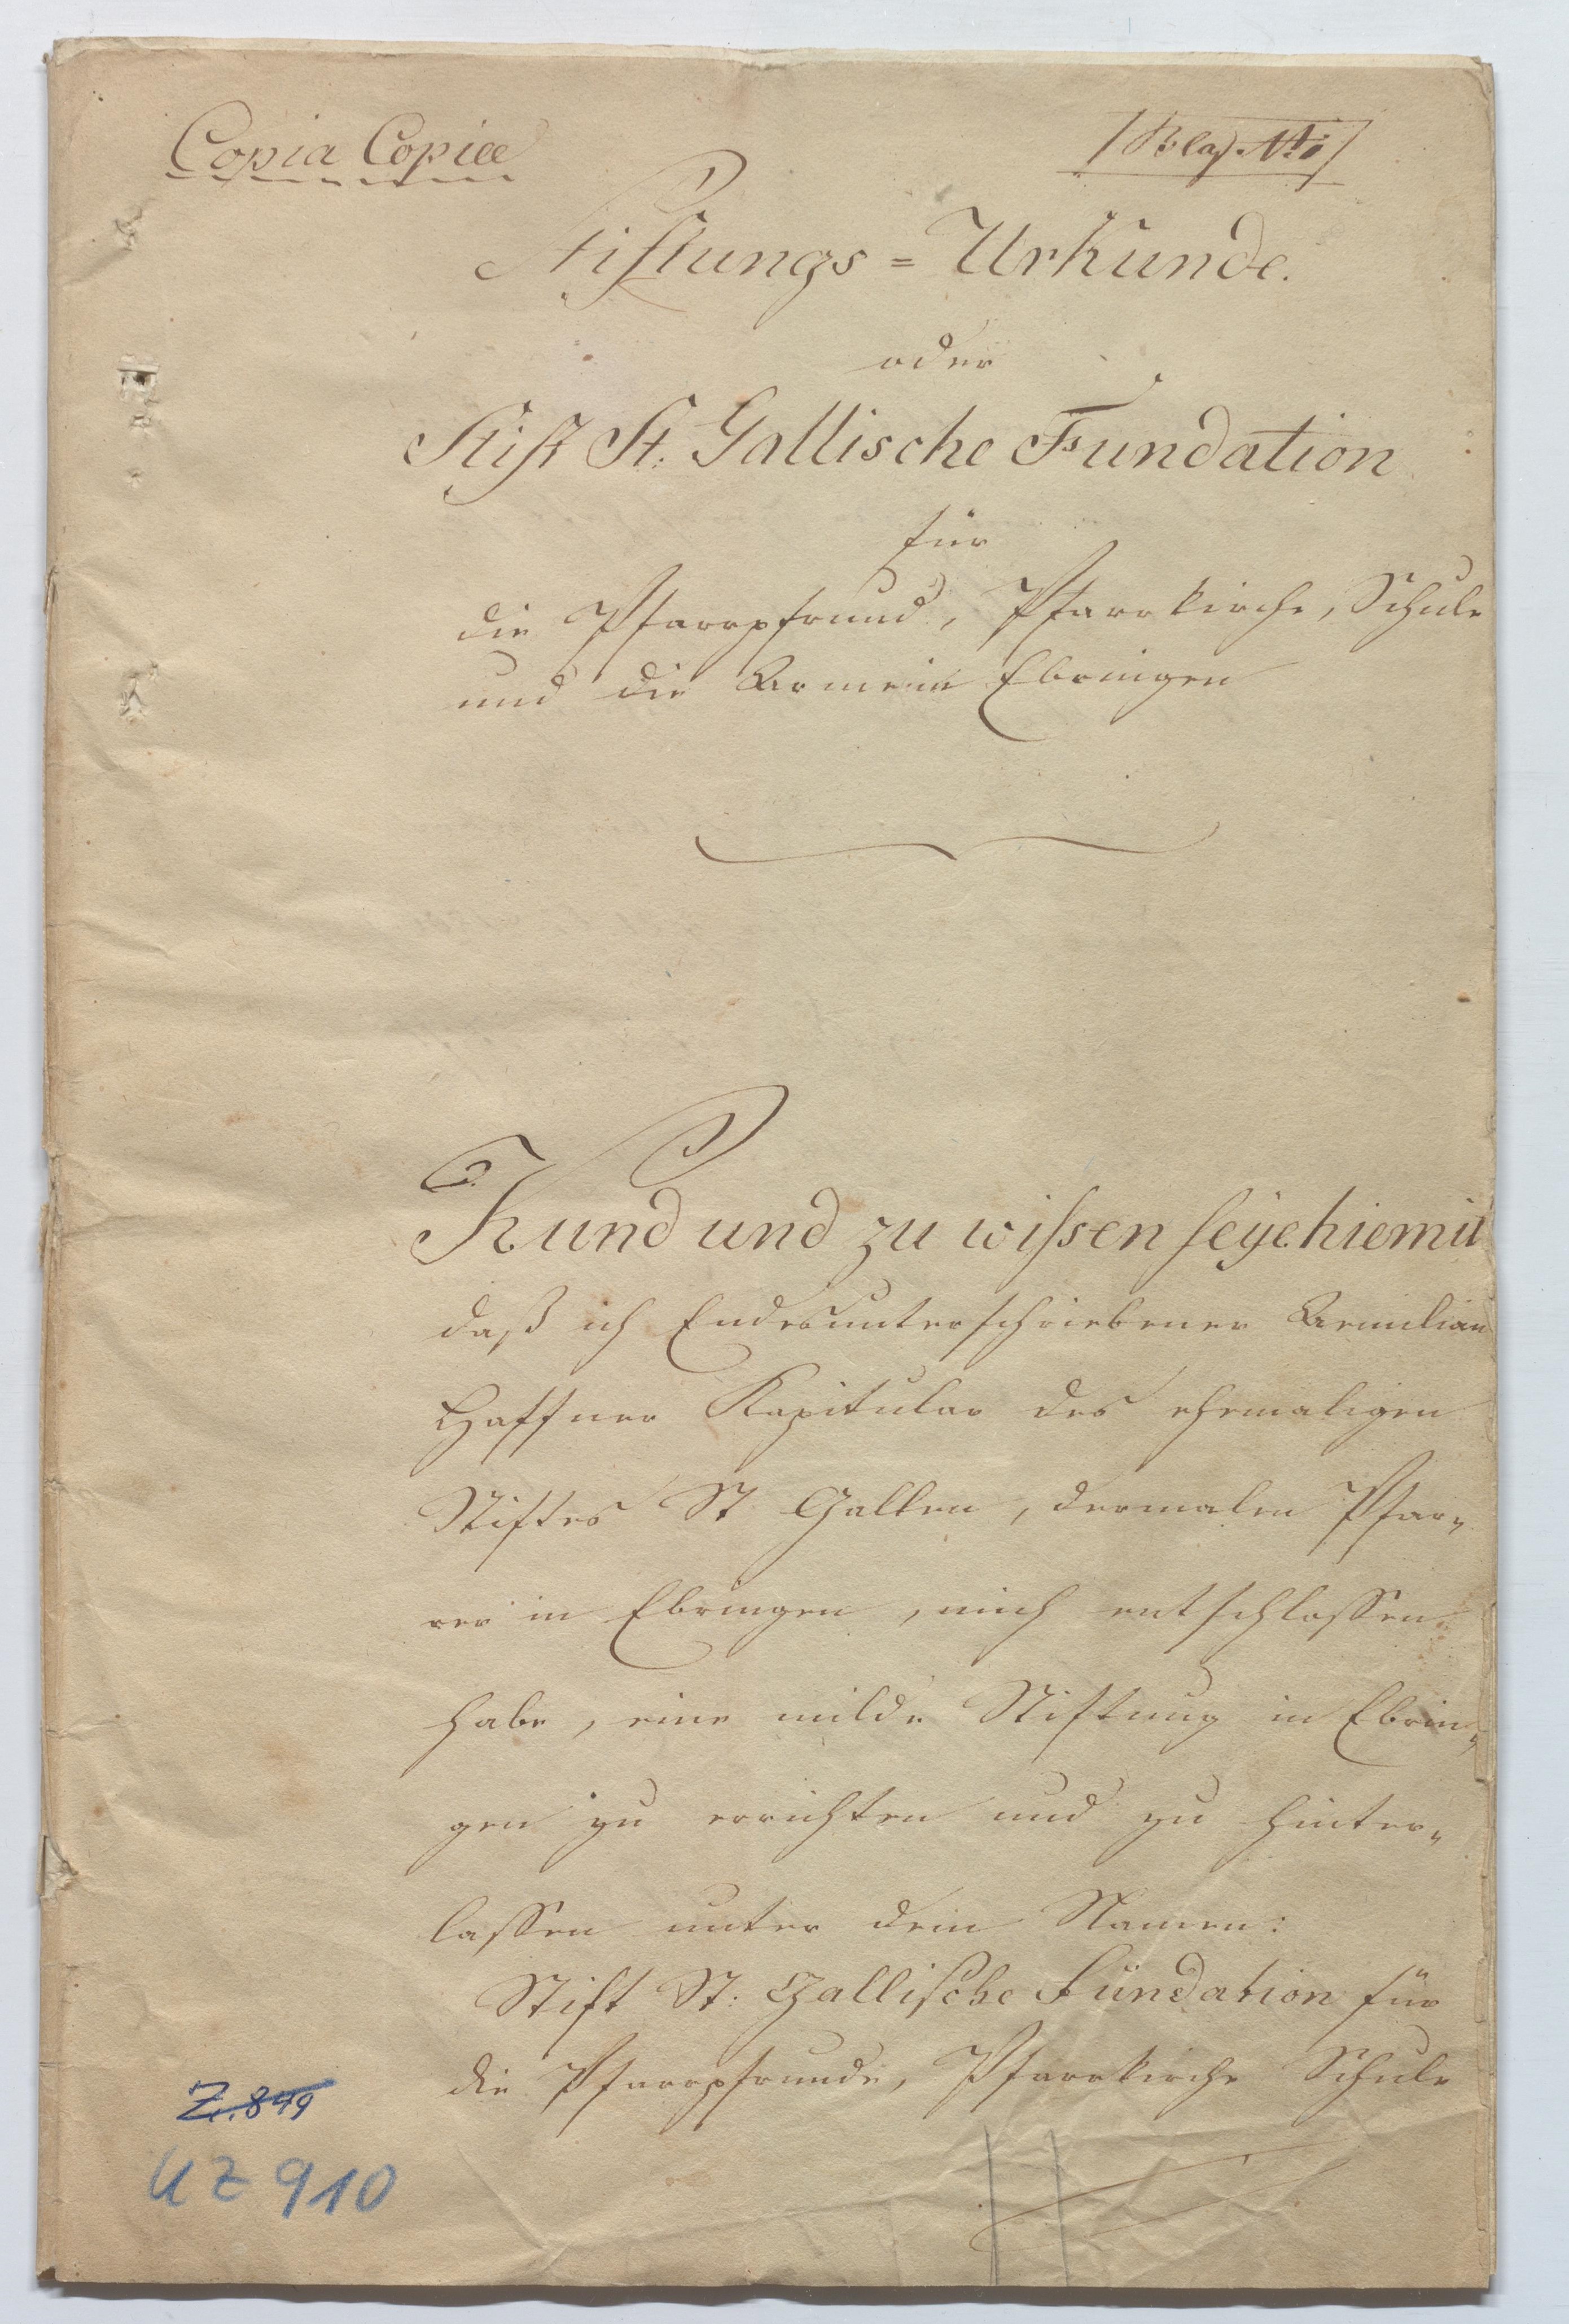 Copia Copiæ
Stiftungs=Urkunde.
oder
Stift St: Gallische Fundation
für
die Pfarrpfrund, Pfarrkirche, Schule
und die Armen in Ebringen
Kund und zu wißen seÿe hiemit
daß ich Endesunterschriebener Aemilian
Haffner Kapitular des ehemaligen
Stiftes St Gallen, dermalen Pfar„
rer in Ebringen, mich entschlossen
habe, eine milde Stiftung in Ebrin„
gen zu errichten und zu hinter„
lassen unter dem Namen:
Stift St: Gallische Fundation für
die Pfarrpfrunde, Pfarrkirche Schule
Z. 849
UZ 910